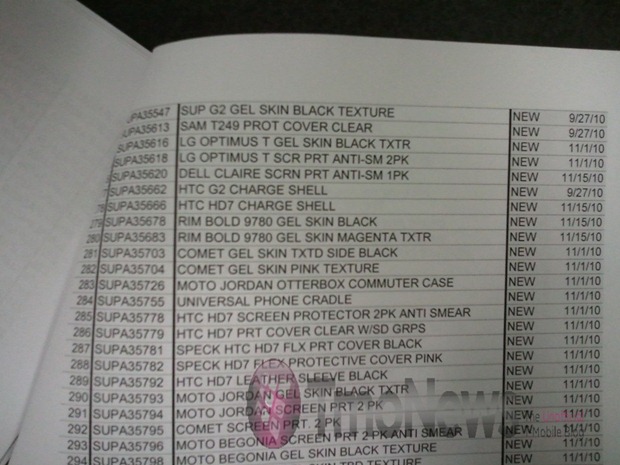 PA35547 SUP G2 GEL SKIN BLACK TEXTURE NEW 9/27/10
SUPA35613 SAM T249 PROT COVER CLEAR NEW 9/27/10
SUPA35616 LG OPTIMUS T GEL SKIN BLACK TXTR NEW 11/1/10
SUPA35618 LG OPTIMUS T SCR PRT ANTI-SM 2PK NEW 11/1/10
SUPA35620 DELL CLAIRE SCRN PRT ANTI-SM 1PK NEW 11/15/10
SUPA35662 HTC G2 CHARGE SHELL NEW 9/27/10
SUPA35666 HTC HD7 CHARGE SHELL NEW 11/15/10
279 SUPA35678 RIM BOLD 9780 GEL SKIN BLACK NEW 11/15/10
280 SUPA35683 RIM BOLD 9780 GEL SKIN MAGENTA TXTR NEW 11/15/10
281 SUPA35703 COMET GEL SKIN TXTD SIDE BLACK NEW 11/1/10
282 SUPA35704 COMET GEL SKIN PINK TEXTURE NEW 11/1/10
283 SUPA35726 MOTO JORDAN OTTERBOX COMMUTER CASE NEW 11/1/10
284 SUPA35755 UNIVERSAL PHONE CRADLE NEW 11/1/10
285 SUPA35778 HTC HD7 SCREEN PROTECTOR 2PK ANTI SMEAR NEW 11/1/10
286 SUPA35779 HTC HD7 PRT COVER CLEAR W/SD GRPS NEW 11/1/10
287 SUPA35781 SPECK HTC HD7 FLX PRT COVER BLACK NEW 11/1/10
288 SUPA35782 SPECK HTC HD7 FLEX PROTECTIVE COVER PINK NEW 11/1/10
289 SUPA35792 HTC HD7 LEATHER SLEEVE BLACK NEW 11/1/10
290 SUPA35793 MOTO JORDAN GEL SKIN BLACK TXTR NEW 11/1/10
291 SUPA35794 MOTO JORDAN SCREEN PRT 2 PK NEW 11/1/10
292 SUPA35795 COMET SCREEN PRT. 2 PK NEW 11/1/10
293 SUPA35796 MOTO BEGONIA SCREEN PRT 2 PK ANTI SMEAR NEW 11/1/10
294 SUPA35798 MOTO BEGONIA GEL SKIN BLACK TEXTURE NEW 11/1/10
TmoNews
Mobile Blog